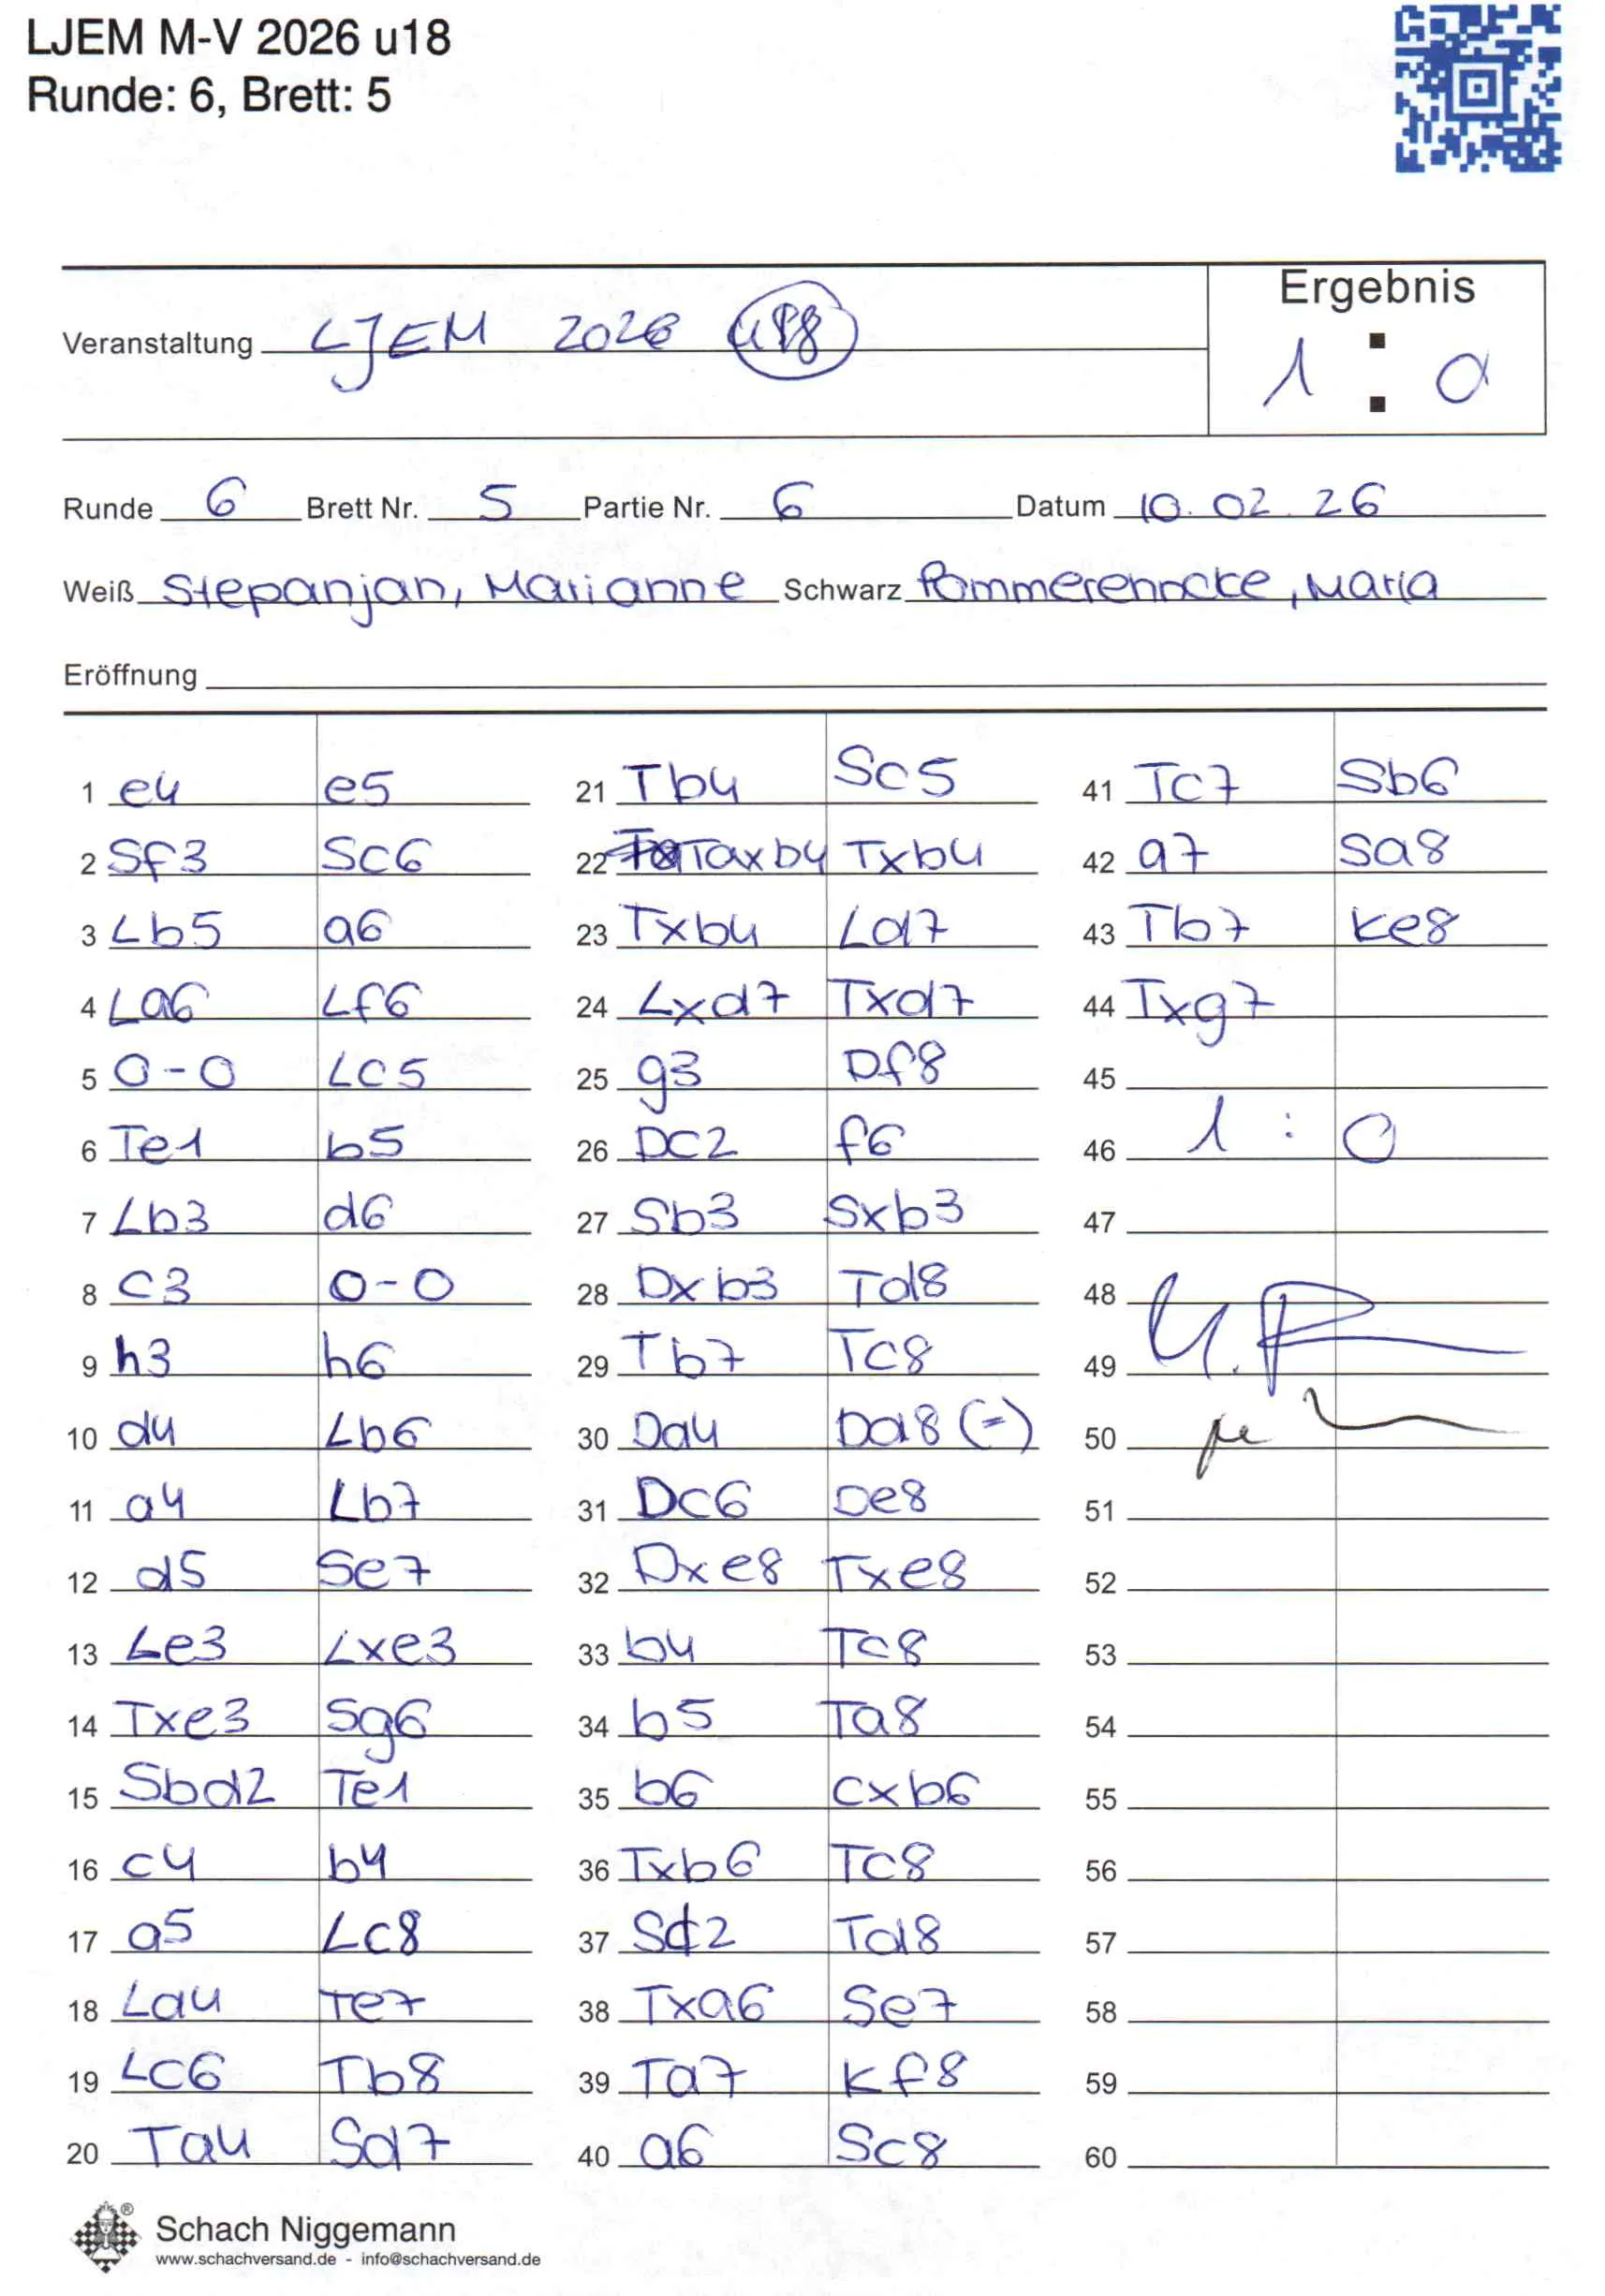 LJEM M-V 2026 u18
Runde: 6, Brett: 5
Ergebnis
Veranstaltung LJEM 2026 u18
1 : 0
Runde 6 Brett Nr. 5 Partie Nr. 6 Datum 10.02.26
Weiß Stepanjan, Marianne Schwarz Pommerehncke, Maria
Eröffnung
1 e4 e5
2 Sf3 Sc6
3 Lb5 a6
4 La6 Lf6
5 0-0 Lc5
6 Te1 b5
7 Lb3 d6
8 c3 0-0
9 h3 h6
10 d4 Lb6
11 a4 Lb7
12 d5 Se7
13 Le3 Lxe3
14 Txe3 Sg6
15 Sbd2 Te1
16 c4 b4
17 a5 Lc8
18 La4 Te7
19 Lc6 Tb8
20 Ta4 Sd7
21 Tb4 Sc5
22 Taxb4 Txb4
23 Txb4 Ld7
24 Lxd7 Txd7
25 g3 Df8
26 Dc2 f6
27 Sb3 Sxb3
28 Dxb3 Td8
29 Tb7 Tc8
30 Da4 Dd8 (=)
31 Dc6 De8
32 Dxe8 Txe8
33 b4 Tc8
34 b5 Ta8
35 b6 cxb6
36 Txb6 Tc8
37 Sd2 Td8
38 Txa6 Se7
39 Ta7 Kf8
40 a6 Sc8
41 Tc7 Sb6
42 a7 Sa8
43 Tb7 Ke8
44 Txg7
45
46 1 : 0
47
48
49
50
51
52
53
54
55
56
57
58
59
60
Schach Niggemann
www.schachversand.de - info@schachversand.de